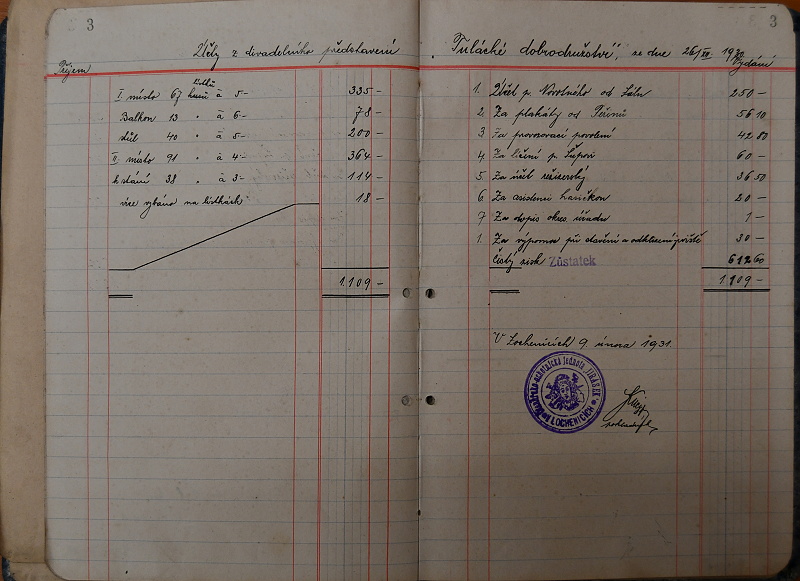 3
Účty z divadelního představení
Příjem
lístků
I místo 67 kusů à 5- 335-
Balkon 13 " à 6- 78-
důl 40 " à 5- 200-
II místo 91 " à 4- 364-
k stání 38 " à 3- 114-
více vybráno na lístkách 18-
1.109-
3
"Tulácké dobrodružství", ze dne 26/XII 1930
Vydání
1. Účet p. Novotného od sálu 250-
2. Za plakáty od Peřinů 56 10
3 Za provozovací povolení 42 80
4. Za líčení p. Šupovi 60-
5. Za účet režisérský 36 50
6. Za asistenci 20-
7 Za dopis okres. úřadu 1-
1. Za výpomoc při stavení a odklizení jeviště 30-
Čistý zisk Zůstatek 612 60
1.109-
V Lochenicích 9. února 1931.
ochotnická jednota JIRÁSEK
LOCHENICÍCH